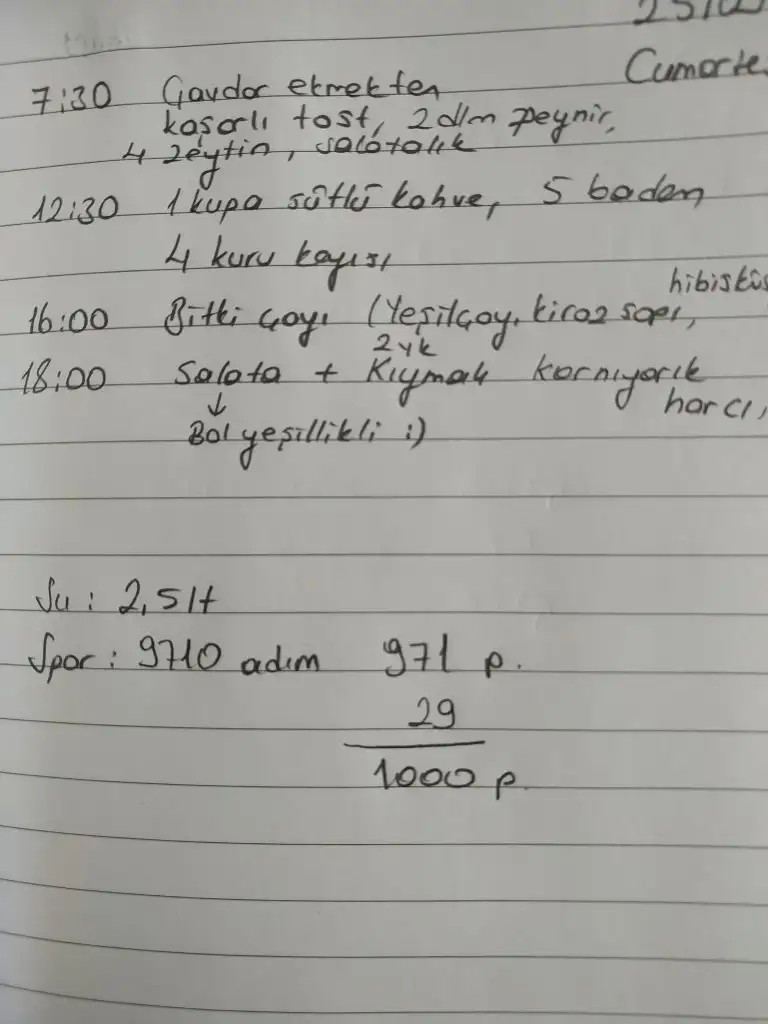 Cumarte
7:30 Çavdar ekmekten
kaşarlı tost, 2 dlm peynir,
4 zeytin, salatalık
12:30 1 kupa sütlü kahve, 5 badem
4 kuru kayısı
hibisküs
16:00 Bitki çayı (Yeşilçay, kiraz sapı,
2 yk
18:00 Salata + Kıymalı karnıyarık
harcı,
↓
Bol yeşillikli :)
Su : 2,5 lt
Spor : 9710 adım 971 p.
29
1000 p.